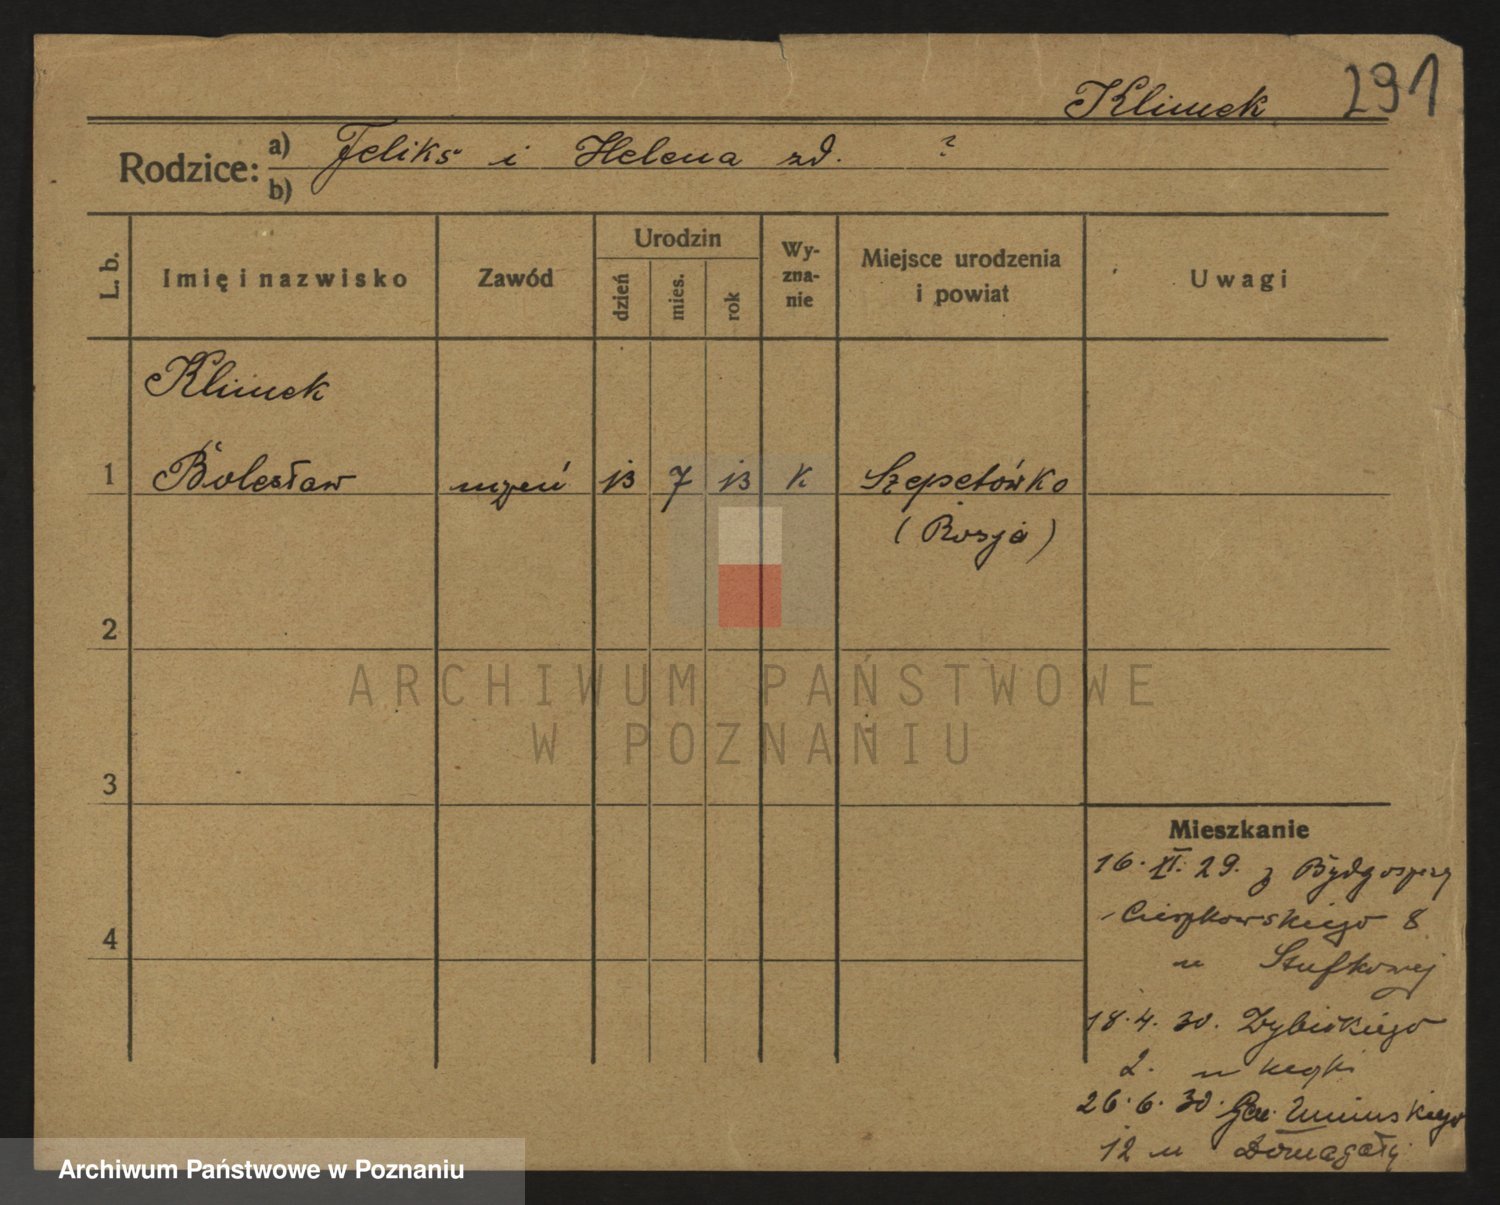 Klimek 291
Rodzice: a) Feliks i Helena zd. ?
b)
L. b. Imię i nazwisko Zawód Urodzin dzień mies. rok Wy-zna-nie Miejsce urodzenia i powiat Uwagi
Klimek
1 Bolesław uczeń 13 7 13 k Szepetówko
(Rosja)
2
3
4
ARCHIWUM PAŃSTWOWE
W POZNANIU
Mieszkanie
16. XI. 29. z Bydgoszczy
Cieszkowskiego 8
u
18. 4. 30.
2. u
26. 6. 30. Gen. Umińskiego
12 u Domagały
Archiwum Państwowe w Poznaniu